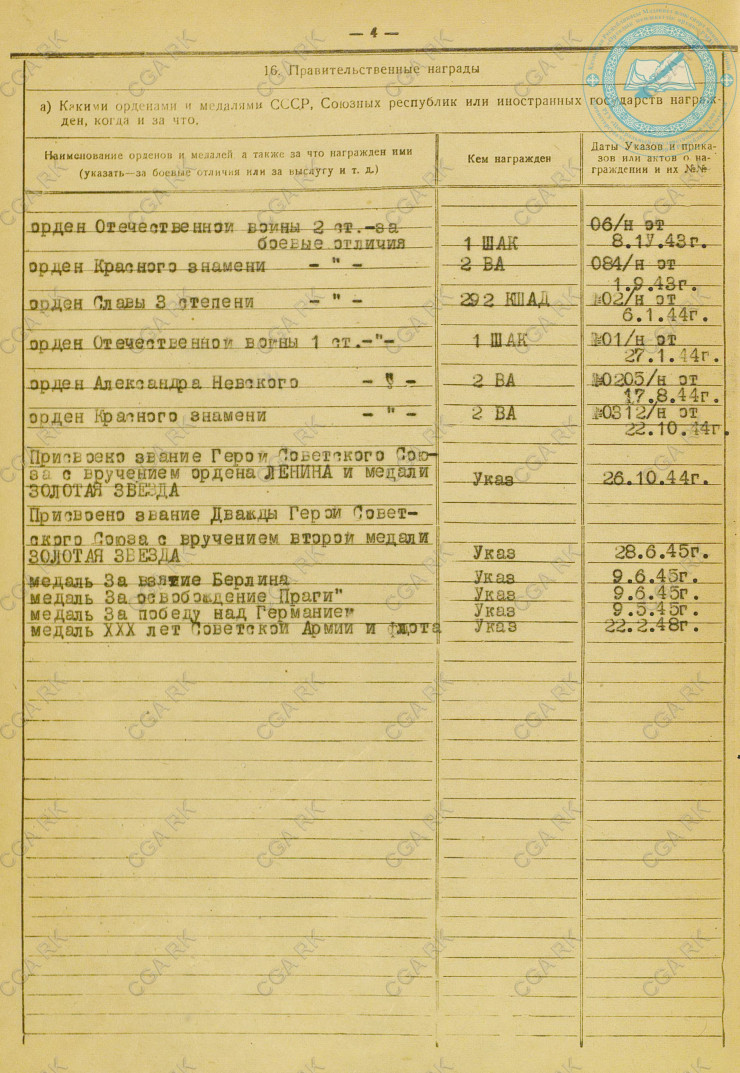 — 4 —
16. Правительственные награды
а) Какими орденами и медалями СССР, Союзных республик или иностранных государств награж-
ден, когда и за что.
Наименование орденов и медалей, а также за что награжден ими
(указать—за боевые отличия или за выслугу и т. д.)
Кем награжден
Даты Указов и прика-
зов или актов о на-
граждении и их №№
орден Отечественной войны 2 ст.-за
боевые отличия
1 ШАК
06/н от
8.1У.43г.
орден Красного знамени - " -
2 ВА
084/н от
1.9.43г.
орден Славы 3 степени - " -
292 КШАД
№02/н от
6.1.44г.
орден Отечественной войны 1 ст.-"-
1 ШАК
№01/н от
27.1.44г.
орден Александра Невского - " -
2 ВА
№0205/н от
17.8.44г.
орден Красного знамени - " -
2 ВА
№0312/н от
22.10.44г.
Присвоено звание Герой Советского Сою-
за с вручением ордена ЛЕНИНА и медали
ЗОЛОТАЯ ЗВЕЗДА
Указ
26.10.44г.
Присвоено звание Дважды Герой Совет-
ского Союза с вручением второй медали
ЗОЛОТАЯ ЗВЕЗДА
Указ
28.6.45г.
медаль За взятие Берлина
Указ
9.6.45г.
медаль За освобождение Праги"
Указ
9.6.45г.
медаль За победу над Германией
Указ
9.5.45г.
медаль ХХХ лет Советской Армии и флота
Указ
22.2.48г.
CGA RK